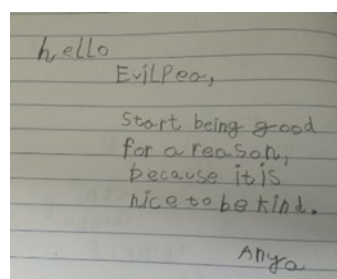 hello
EvilPea,
Start being good
for a reason,
because it is
nice to be kind.
Anya